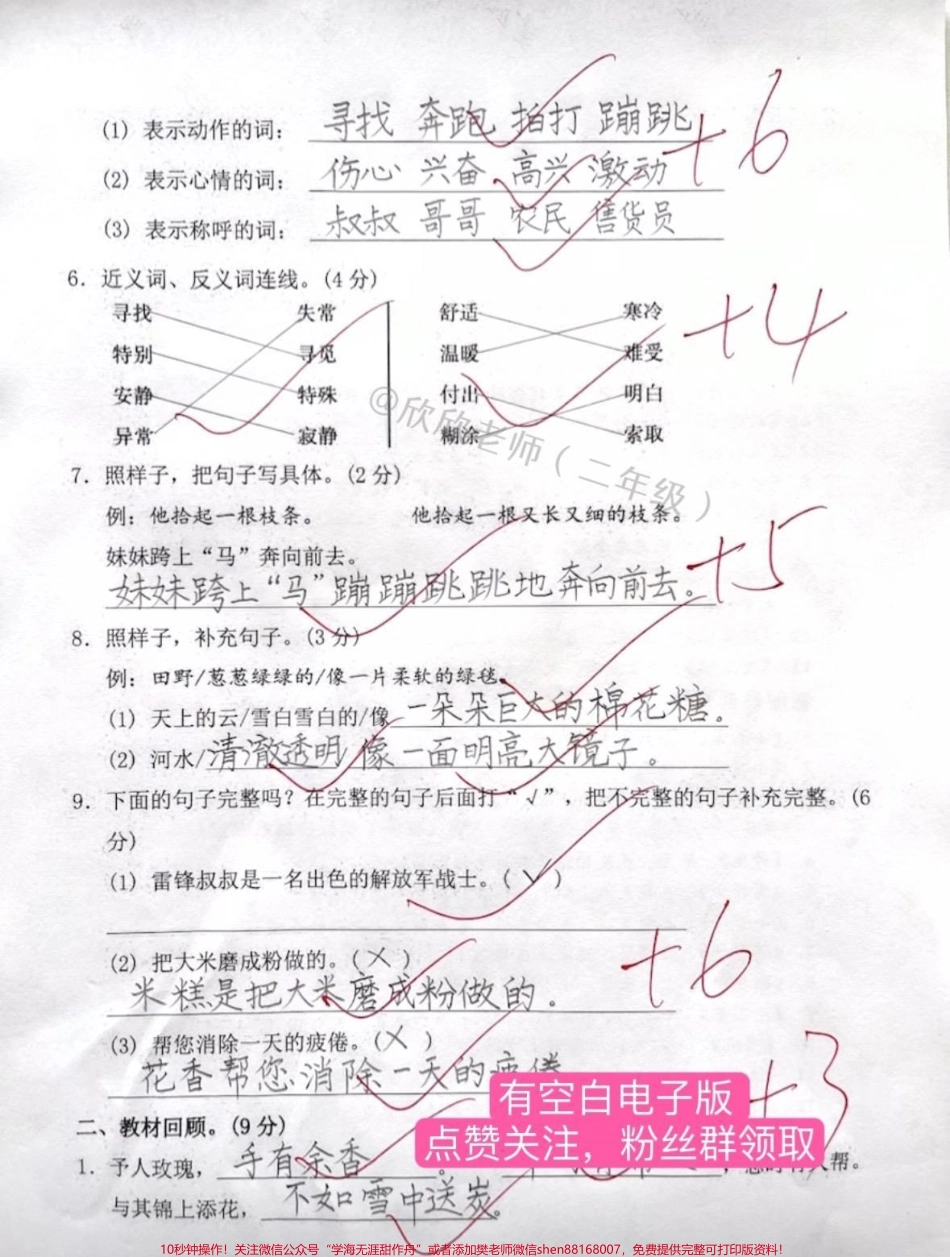 (1) 表示动作的词： 寻找 奔跑 拍打 蹦跳
+6
(2) 表示心情的词： 伤心 兴奋 高兴 激动
(3) 表示称呼的词： 叔叔 哥哥 农民 售货员
6. 近义词、反义词连线。(4 分)
寻找 失常 舒适 寒冷
+4
特别 寻觅 温暖 难受
安静 特殊 付出 明白
异常 寂静 糊涂 索取
@欣欣老师（二年级）
7. 照样子，把句子写具体。(2 分)
例：他拾起一根枝条。 他拾起一根又长又细的枝条。
妹妹跨上“马”奔向前去。
妹妹跨上“马”蹦蹦跳跳地奔向前去。
+5
8. 照样子，补充句子。(3 分)
例：田野/葱葱绿绿的/像一片柔软的绿毯。
(1) 天上的云/雪白雪白的/像 一朵朵巨大的棉花糖。
(2) 河水/清澈透明 像 一面明亮大镜子。
9. 下面的句子完整吗？在完整的句子后面打“√”，把不完整的句子补充完整。(6
分)
(1) 雷锋叔叔是一名出色的解放军战士。(√)
(2) 把大米磨成粉做的。(×)
+6
米糕是把大米磨成粉做的。
(3) 帮您消除一天的疲倦。(×)
花香帮您消除一天的疲倦
+3
有空白电子版
点赞关注，粉丝群领取
二、教材回顾。(9 分)
1. 予人玫瑰，手有余香。 人帮。
与其锦上添花，不如雪中送炭。
10秒钟操作！关注微信公众号“学海无涯甜作舟”或者添加樊老师微信shen88168007，免费提供完整可打印版资料！